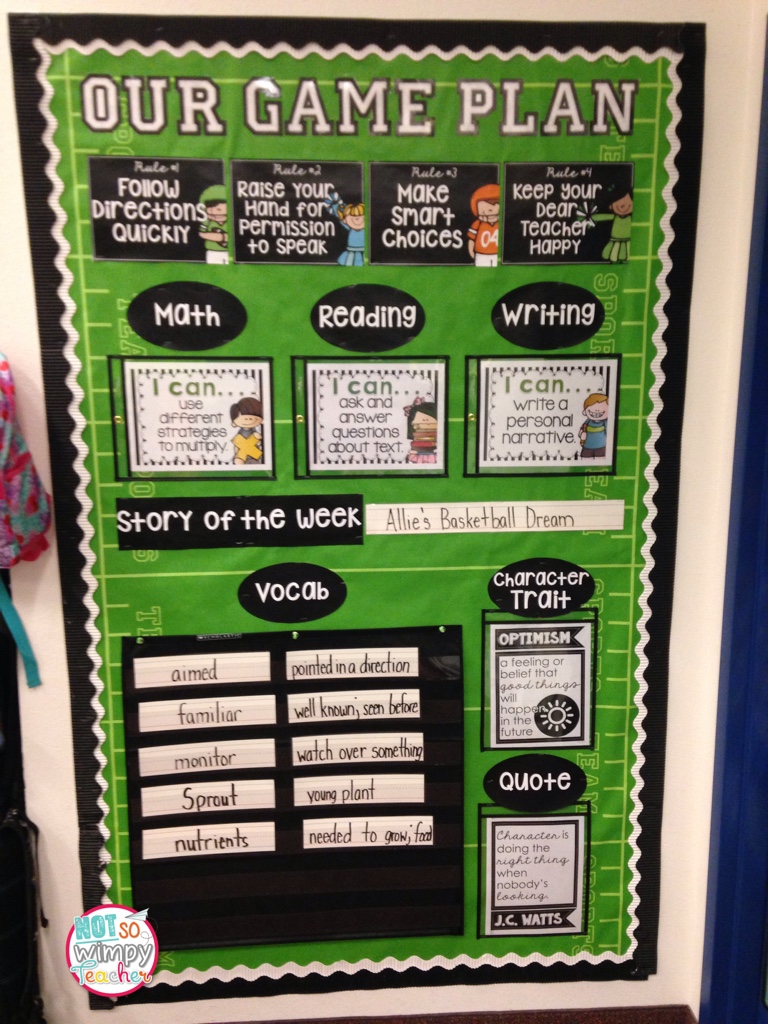 OUR GAME PLAN
Rule #1
Follow
Directions
Quickly
Rule #2
Raise Your
Hand for
Permission
to Speak
Rule #3
Make
Smart
Choices
04
Rule #4
Keep your
Dear
Teacher
Happy
Math
Reading
Writing
I can....
use
different
strategies
to multiply.
I can....
ask and
answer
questions
about text.
I can....
write a
personal
narrative.
Story of the Week
Allie's Basketball Dream
Vocab
SCHOLASTIC
aimed
pointed in a direction
familiar
well known; seen before
monitor
watch over something
Sprout
young plant
nutrients
needed to grow; food
Character
Trait
OPTIMISM
a feeling or
belief that
good things
will
happen
in the
future
Quote
Character is
doing the
right thing
when
nobody's
looking.
J.C. WATTS
NOT SO
Wimpy
Teacher